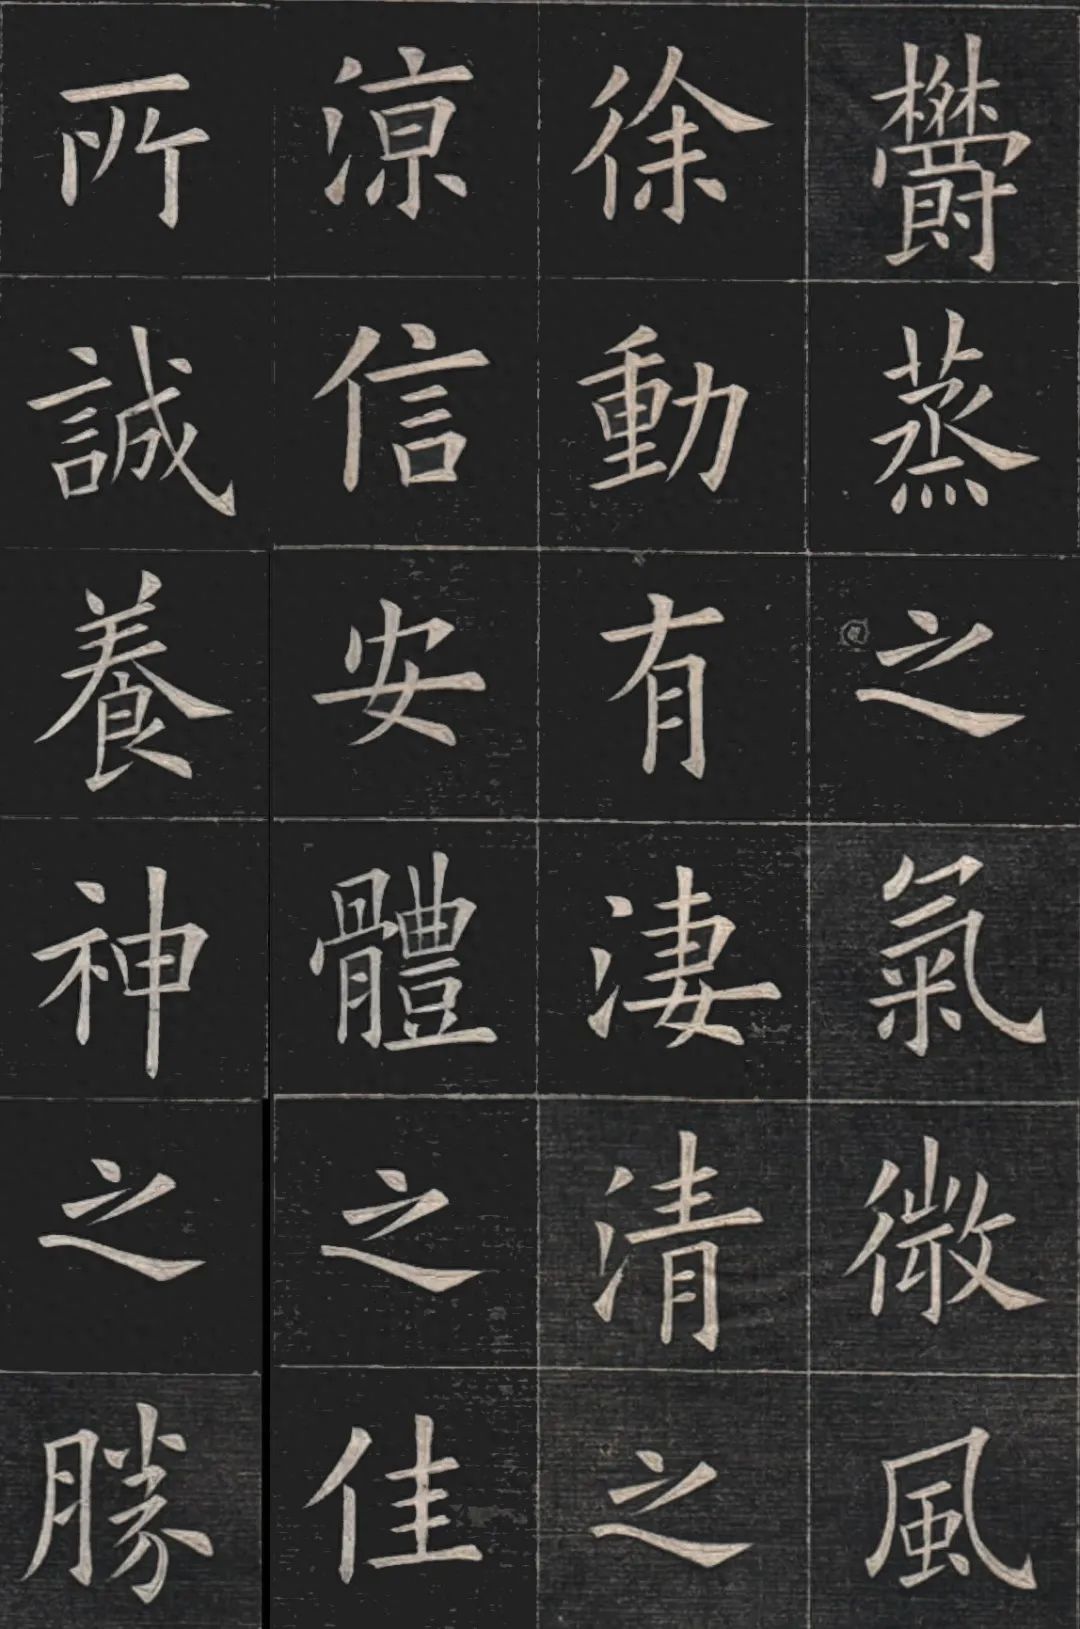 欝蒸之氣微風
徐動有淒清之
涼信安體之佳
所誠養神之勝